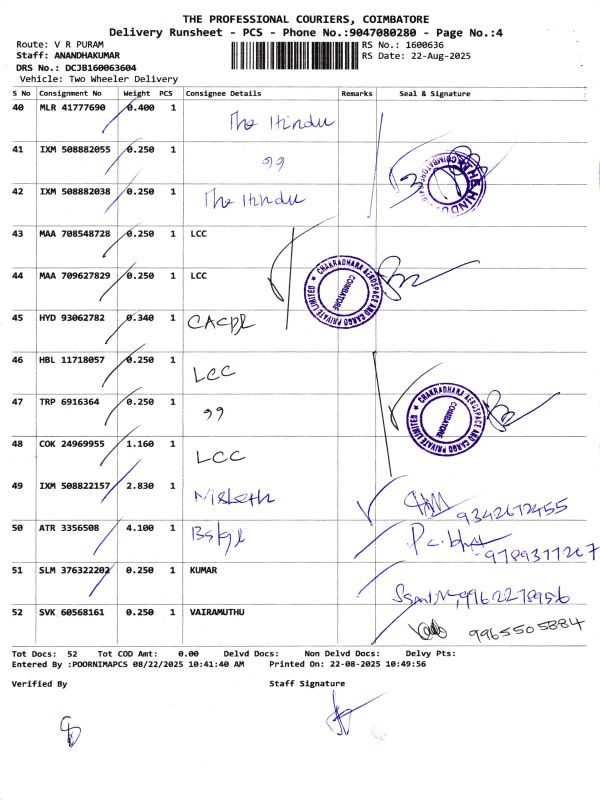 THE PROFESSIONAL COURIERS, COIMBATORE
Delivery Runsheet - PCS - Phone No.:9047080280 - Page No.:4
Route: V R PURAM
Staff: ANANDHAKUMAR
DRS No.: DCJB160063604
Vehicle: Two Wheeler Delivery
RS No.: 1600636
RS Date: 22-Aug-2025
S No Consignment No Weight PCS Consignee Details Remarks Seal & Signature
40 MLR 41777690 0.400 1 The Hindu
41 IXM 508882055 0.250 1 99
42 IXM 508882038 0.250 1 The Hindu
3 THE HINDU
43 MAA 708548728 0.250 1 LCC
44 MAA 709627829 0.250 1 LCC
CHAKRADHARA AEROSPACE AND CARGO PRIVATE LIMITED
COIMBATORE
45 HYD 93062782 0.340 1 CACPL
46 HBL 11718057 0.250 1 LCC
47 TRP 6916364 0.250 1 99
CHAKRADHARA AEROSPACE AND CARGO PRIVATE LIMITED
COIMBATORE
48 COK 24969955 1.160 1 LCC
49 IXM 508822157 2.830 1 9342672455
50 ATR 3356508 4.100 1 9789377267
51 SLM 376322202 0.250 1 KUMAR 9962278956
52 SVK 60568161 0.250 1 VAIRAMUTHU 9965505884
Tot Docs: 52 Tot COD Amt: 0.00 Delvd Docs: Non Delvd Docs: Delvy Pts:
Entered By :POORNIMAPCS 08/22/2025 10:41:40 AM Printed On: 22-08-2025 10:49:56
Verified By Staff Signature